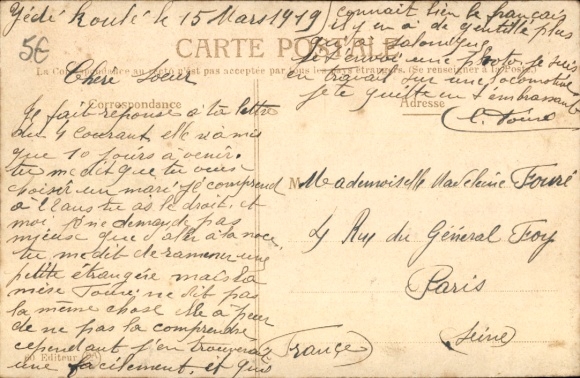 Yédé Koulé le 15 Mars 1919
5€
CARTE POSTALE
La Correspondance au recto n'est pas acceptée par tous les pays étrangers. (Se renseigner à la Poste)
Chère Sœur
Correspondance
Je fait réponse à ta lettre
du 4 courant, elle n'a mis
que 10 jours à venir.
tu me dit que tu veus
choisir un mari, je comprend
à ans tu as le droit, et
moi je ne demande pas
mieuse que d'aler à la noce
tu me dit de ramener une
petite étrangère mais la
mère Fouré ne dit pas
la même chose elle à peur
de ne pas la comprendre
cependant j'en trouverait
une facilement, et qui
Editeur
connait bien le français
il y en a de gentille plus
qu'à Salonique
je t'envoi une photo je suis
en travail sur une locomotive
je te quitte en t'embrassant
Fouré
Adresse
Mademoiselle Madeleine Fouré
4 Rue du Général Foy
Paris
Seine
France